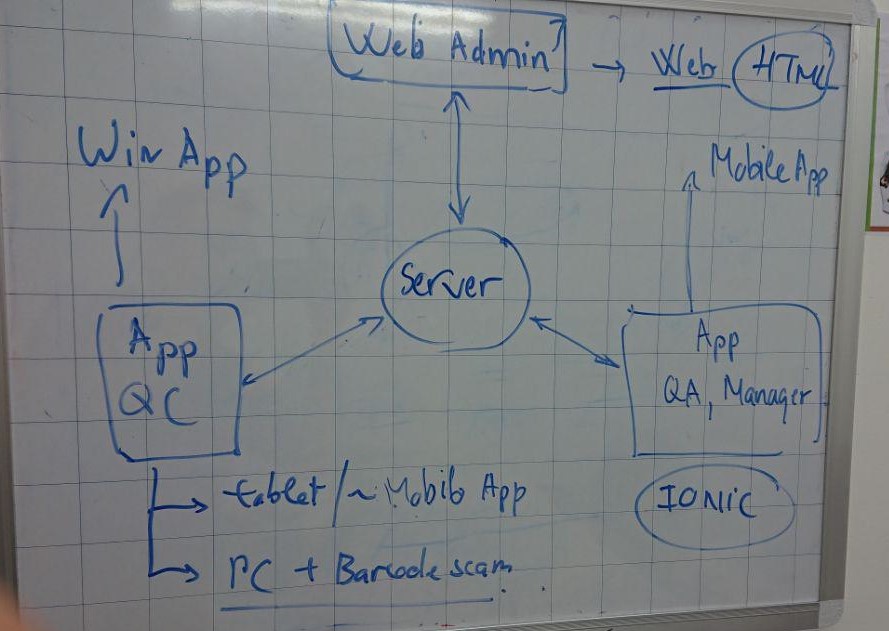 Web Admin → Web HTML
Win App
Mobile App
Server
App
QC
App
QA, Manager
tablet / ~ Mobib App
IONIC
PC + Barcode scam